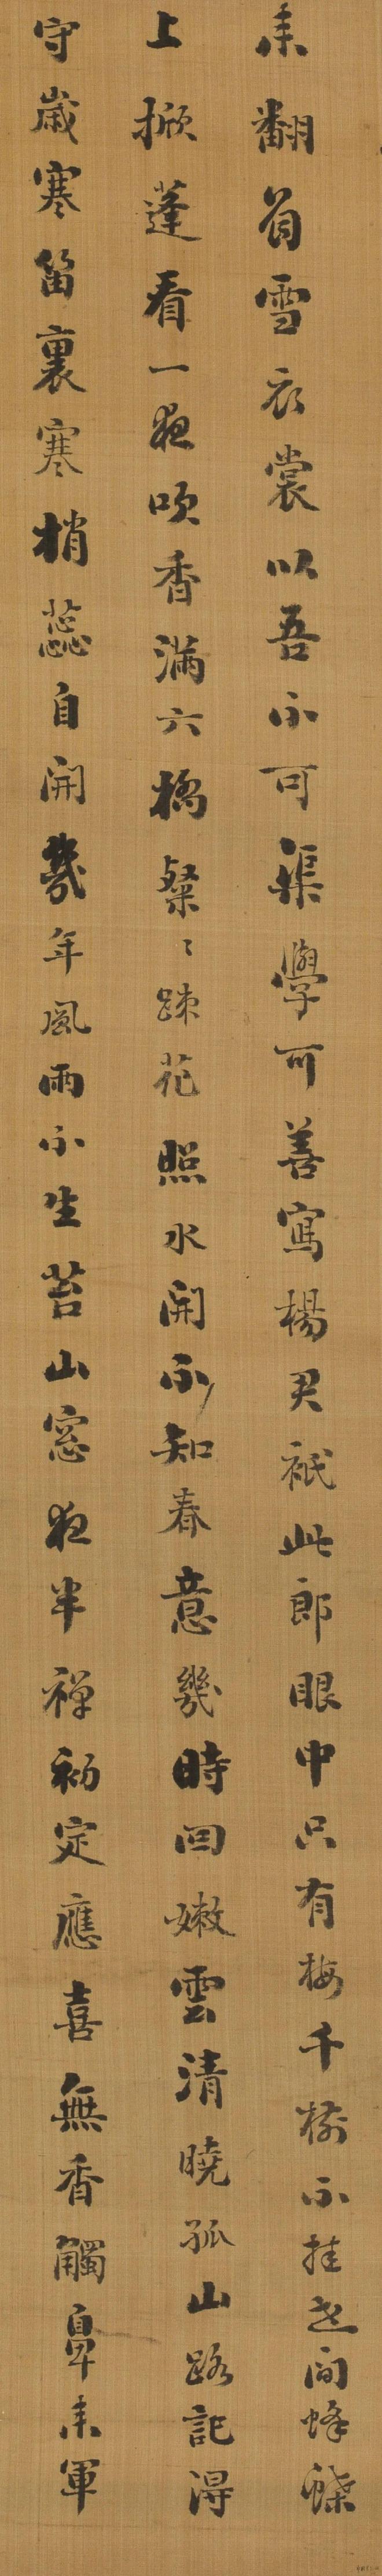 来翻着雪衣裳以吾不可渠學可善寫楊君祇此郎眼中只有梅千樹不挂世間蜂蝶
上掀蓬看一夜吹香滿六橋粲〻踈花照水開不知春意幾時回嫩雲清曉孤山路記得
守歲寒笛裏寒梢蕊自開幾年風雨不生苔山窓夜半禪初定應喜無香觸鼻来軍